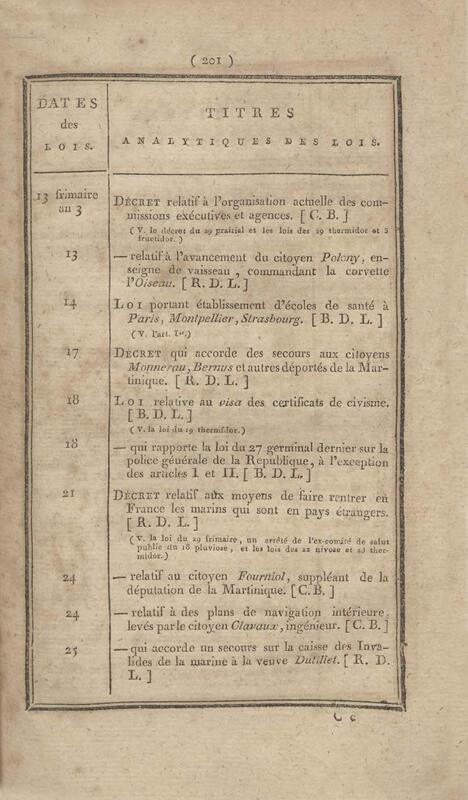 ( 201 )
DATES
des
LOIS.
TITRES
ANALYTIQUES DES LOIS.
13 frimaire
an 3
DÉCRET relatif à l'organisation actuelle des com-
missions exécutives et agences. [ C. B. ]
( V. le décret du 29 prairial et les lois des 19 thermidor et 5
fructidor. )
13
— relatif à l'avancement du citoyen Polony, en-
seigne de vaisseau , commandant la corvette
l'Oiseau. [ R. D. L. ]
14
LOI portant établissement d'écoles de santé à
Paris, Montpellier, Strasbourg. [ B. D. L. ]
( V. l'art. Ier.)
17
DÉCRET qui accorde des secours aux citoyens
Monnerau, Bernus et autres déportés de la Mar-
tinique. [ R. D. L. ]
18
LOI relative au visa des certificats de civisme.
[ B. D. L. ]
( V. la loi du 19 thermidor.)
18
— qui rapporte la loi du 27 germinal dernier sur la
police générale de la Republique, à l'exception
des articles I et II. [ B. D. L. ]
21
DÉCRET relatif aux moyens de faire rentrer en
France les marins qui sont en pays étrangers.
[ R. D. L. ]
( V. la loi du 29 frimaire, un arrêté de l'ex-comité de salut
public du 18 pluviose, et les lois des 22 nivose et 25 ther-
midor. )
24
— relatif au citoyen Fourniol, suppléant de la
députation de la Martinique. [ C. B. ]
24
— relatif à des plans de navigation intérieure,
levés par le citoyen Clavaux, ingénieur. [ C. B. ]
25
— qui accorde un secours sur la caisse des Inva-
lides de la marine à la veuve Dutillet. [ R. D.
L. ]
C c